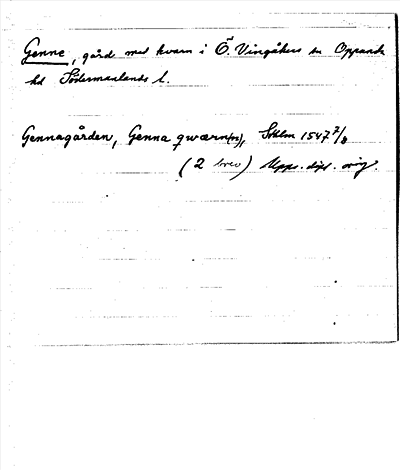 Genne, gård med kvarn i Ö. Vingåkers sn Oppunda
hd Södermanlands l.
Gennagården, Genna qwærn(en), Sthlm 1547 2/8
(2 brev) Upps. dipl. orig.